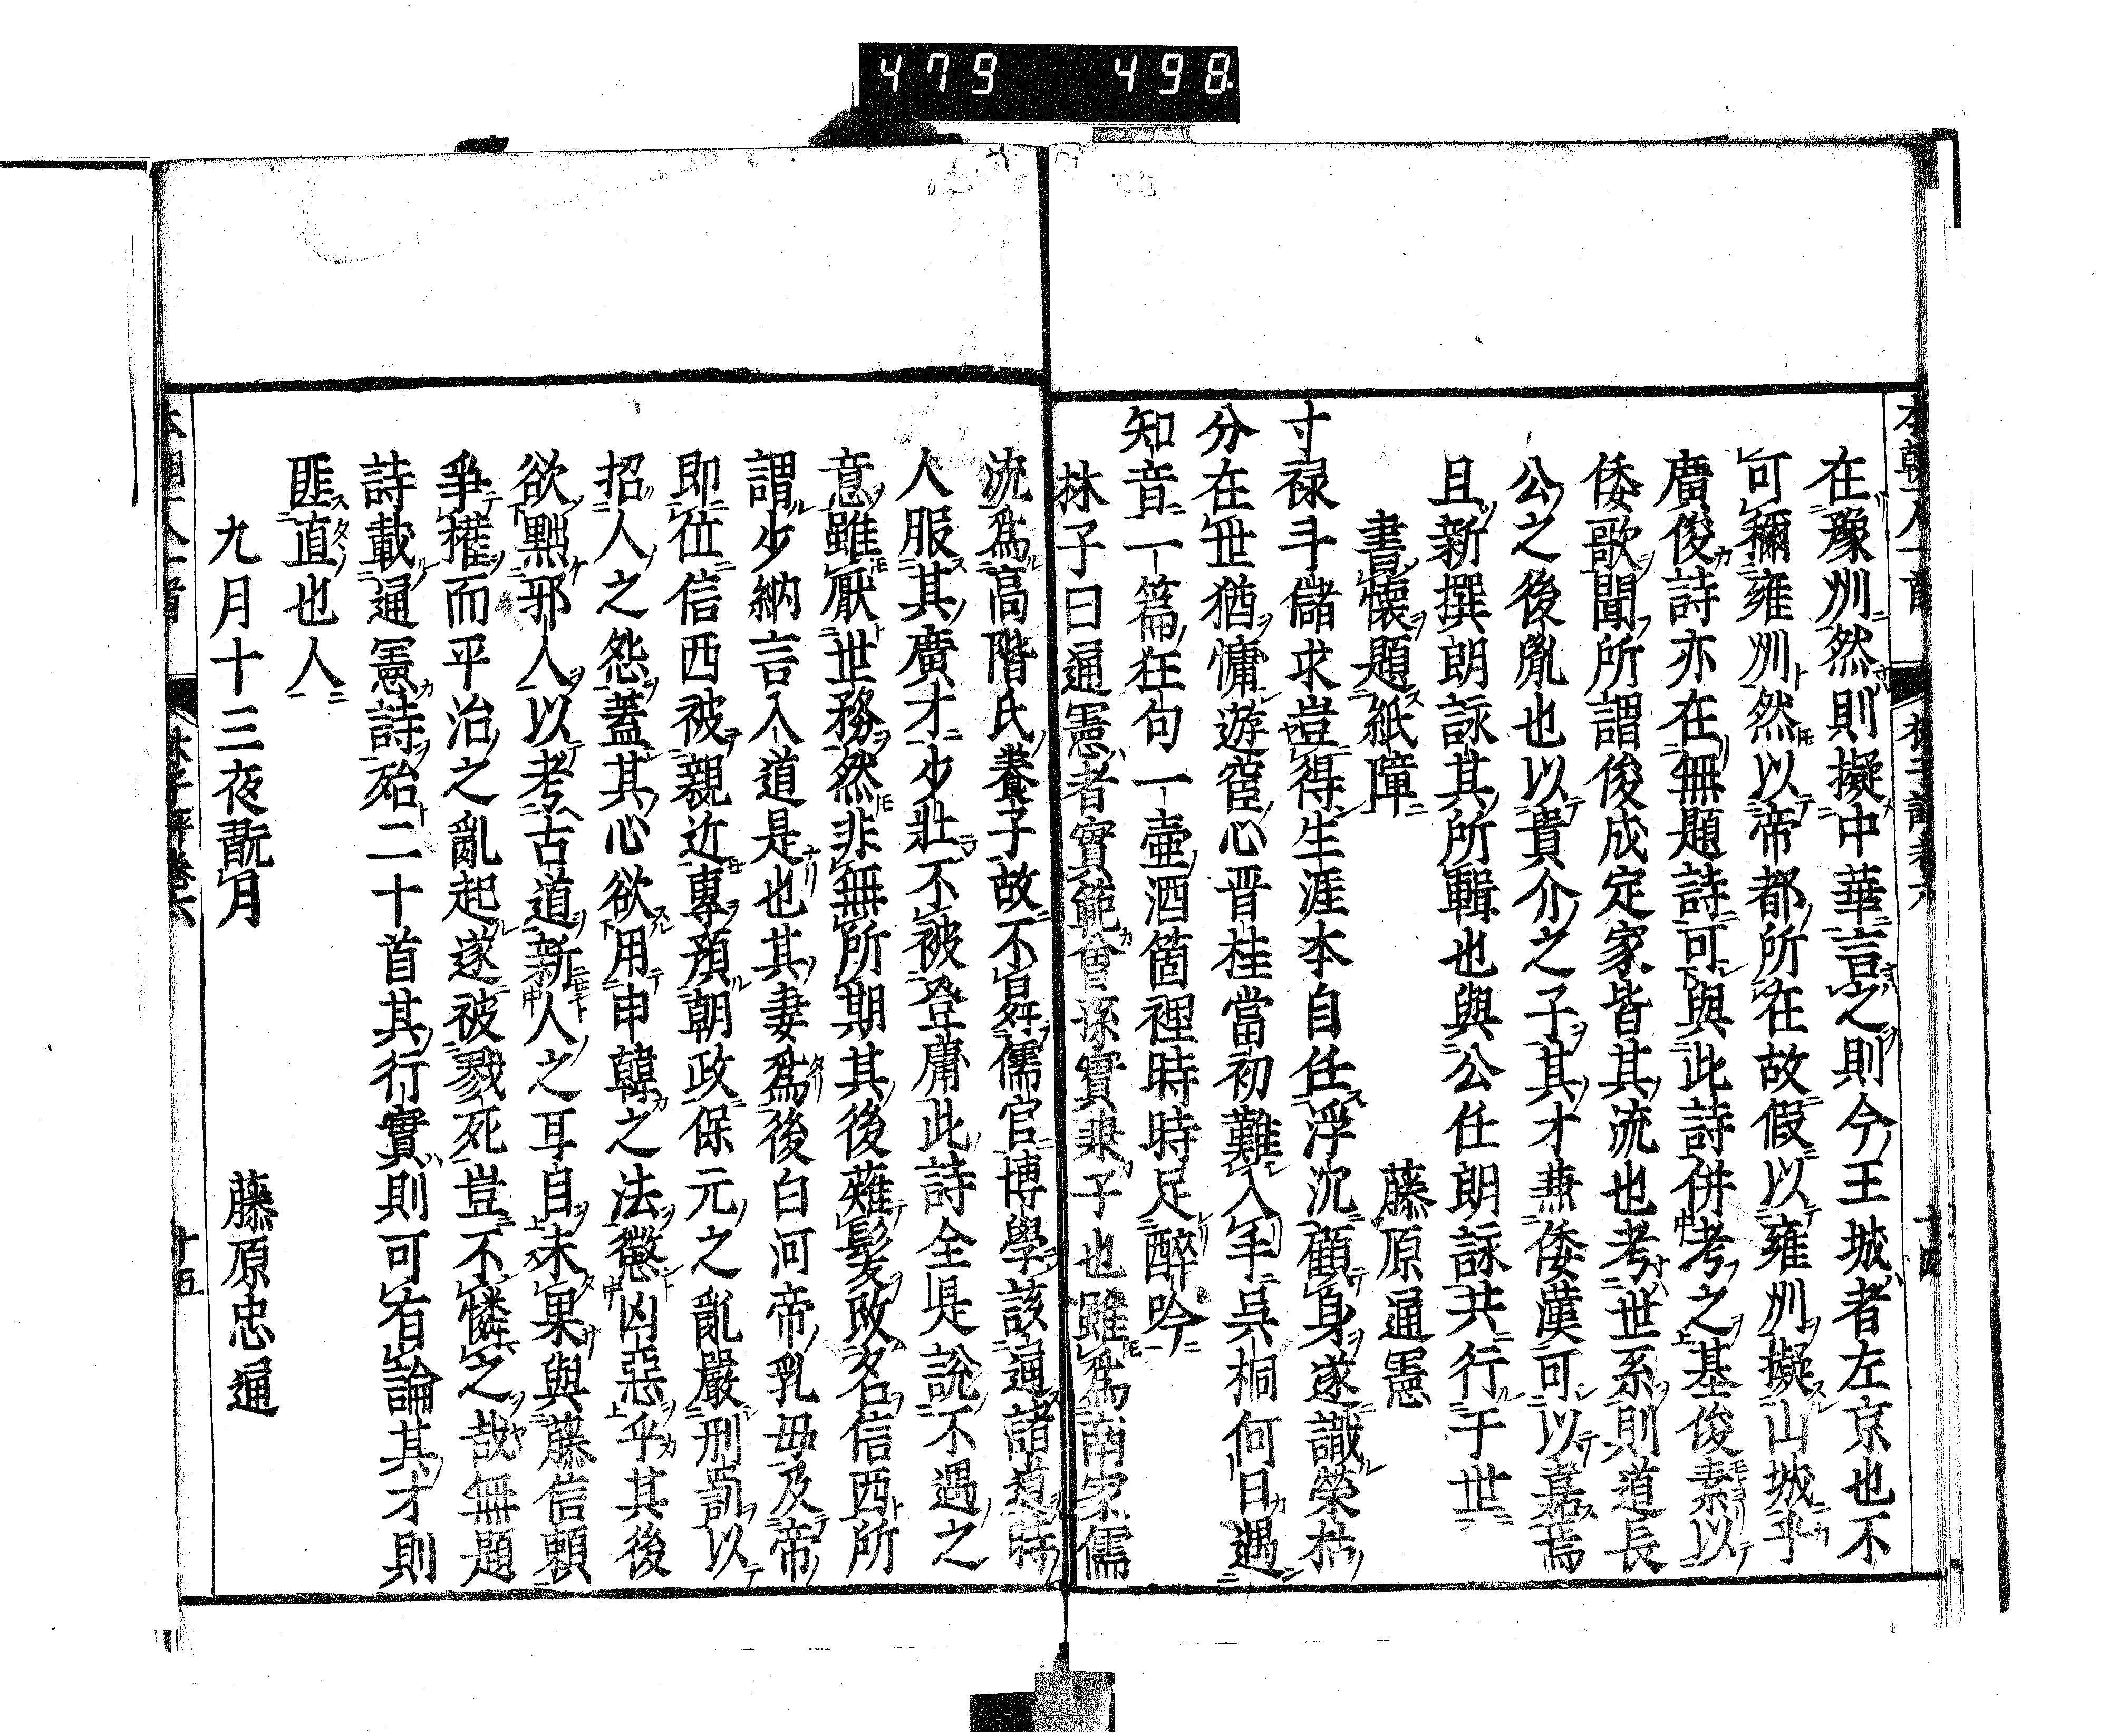 479 498
在豫州然則擬中華言之則今王城者左京也不
可稱雍州然以帝都所在故假以雍州擬山城乎
廣俊詩亦在無題詩可與此詩併考之基俊素以
倭歌聞所謂俊成定家皆其流也考世系則道長
公之後胤也以貴介之子其才兼倭漢可以嘉焉
且新撰朗詠其所輯也與公任朗詠共行于世
書懷題紙障 藤原通憲
寸祿斗儲求豈得生涯本自任浮沉顧身遂識榮枯
分在世猶慵遊宦心晋桂當初難入手吳桐何日遇
知音一篇狂句一壷酒箇裡時時足醉吟
林子曰通憲者實範曾孫實兼子也雖爲南家儒
流爲高階氏養子故不昇儒官博學該通諸道時
人服其廣才少壯不被登庸此詩全是說不遇之
意雖厭世務然非無所期其後薙髮改名信西所
謂少納言入道是也其妻爲後白河帝乳母及帝
即位信西被親近專預朝政保元之亂嚴刑罰以
招人之怨蓋其心欲用申韓之法懲凶惡乎其後
欲黜邪人以考古道新人之耳自未果與藤信賴
爭權而平治之亂起遂被戮死豈不憐之哉無題
詩載通憲詩殆二十首其行實則可有論其才則
匪直也人
九月十三夜翫月 藤原忠通
本朝一人一首 林子評卷六 十五